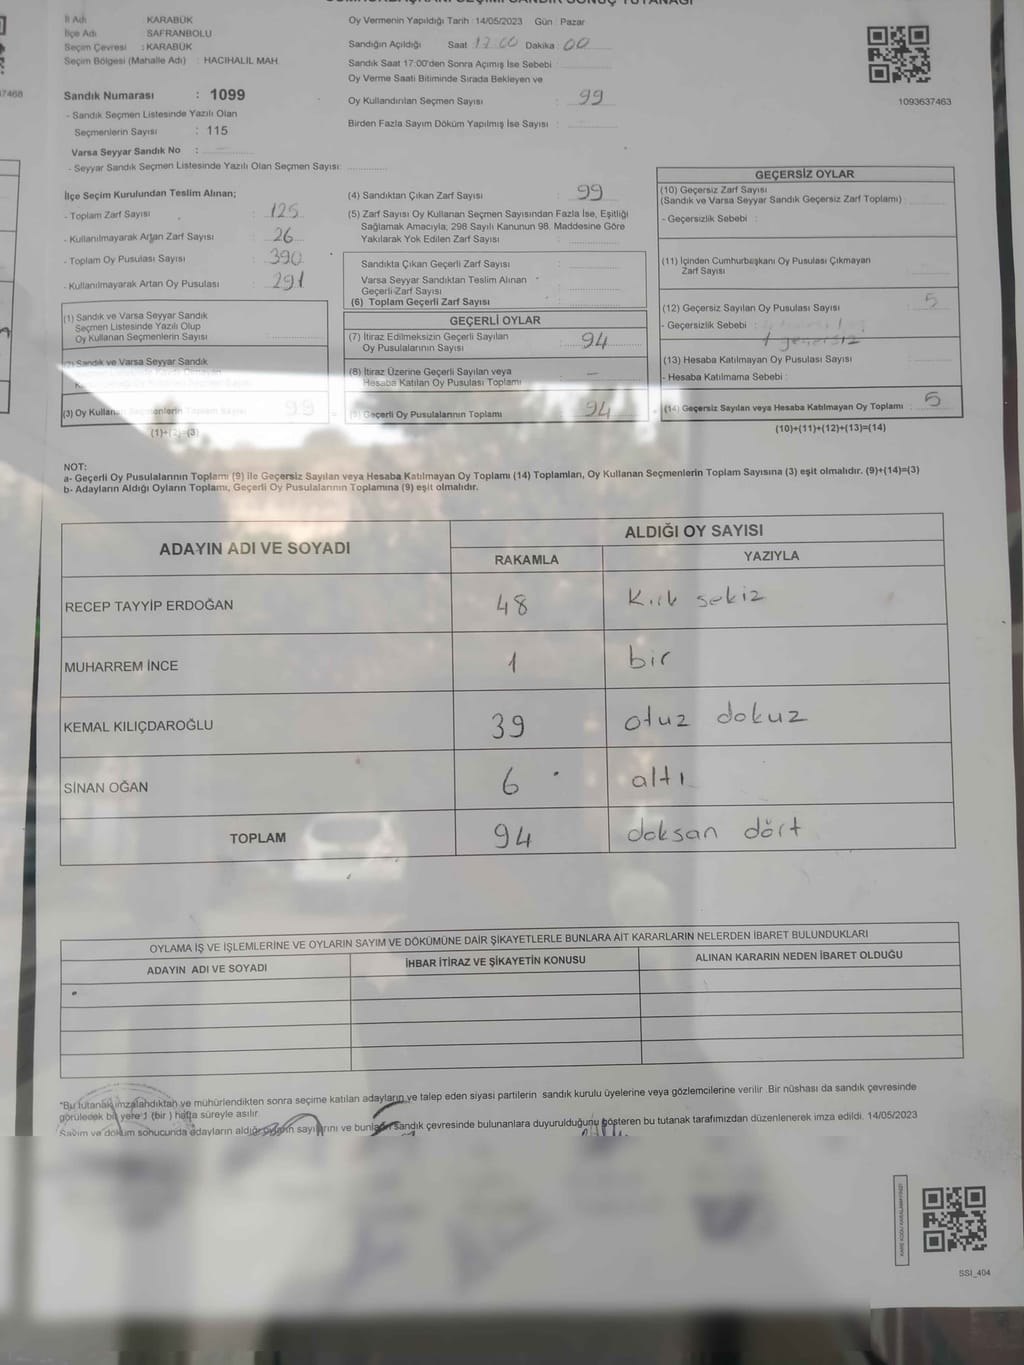 İl Adı KARABÜK
İlçe Adı SAFRANBOLU
Seçim Çevresi : KARABÜK
Seçim Bölgesi (Mahalle Adı) : HACIHALİL MAH.
Sandık Numarası : 1099
- Sandık Seçmen Listesinde Yazılı Olan
Seçmenlerin Sayısı : 115
Varsa Seyyar Sandık No :
- Seyyar Sandık Seçmen Listesinde Yazılı Olan Seçmen Sayısı:
Oy Vermenin Yapıldığı Tarih : 14/05/2023 Gün : Pazar
Sandığın Açıldığı Saat 17 00 Dakika : 00
Sandık Saat 17:00'den Sonra Açılmış İse Sebebi :
Oy Verme Saati Bitiminde Sırada Bekleyen ve
Oy Kullandırılan Seçmen Sayısı : 99
Birden Fazla Sayım Döküm Yapılmış İse Sayısı :
1093637463
İlçe Seçim Kurulundan Teslim Alınan;
- Toplam Zarf Sayısı : 125
- Kullanılmayarak Artan Zarf Sayısı : 26
- Toplam Oy Pusulası Sayısı : 390
- Kullanılmayarak Artan Oy Pusulası : 291
(1) Sandık ve Varsa Seyyar Sandık
Seçmen Listesinde Yazılı Olup
Oy Kullanan Seçmenlerin Sayısı :
Sandık ve Varsa Seyyar Sandık
(3) Oy Kullanan Seçmenlerin Toplam Sayısı 99
(1)+(2)=(3)
(4) Sandıktan Çıkan Zarf Sayısı : 99
(5) Zarf Sayısı Oy Kullanan Seçmen Sayısından Fazla İse, Eşitliği
Sağlamak Amacıyla, 298 Sayılı Kanunun 98. Maddesine Göre
Yakılarak Yok Edilen Zarf Sayısı :
Sandıkta Çıkan Geçerli Zarf Sayısı :
Varsa Seyyar Sandıktan Teslim Alınan
Geçerli Zarf Sayısı
(6) Toplam Geçerli Zarf Sayısı :
GEÇERLİ OYLAR
(7) İtiraz Edilmeksizin Geçerli Sayılan
Oy Pusulalarının Sayısı : 94
(8) İtiraz Üzerine Geçerli Sayılan veya
Hesaba Katılan Oy Pusulası Toplamı : -
(9) Geçerli Oy Pusulalarının Toplamı : 94
GEÇERSİZ OYLAR
(10) Geçersiz Zarf Sayısı
(Sandık ve Varsa Seyyar Sandık Geçersiz Zarf Toplamı) :
- Geçersizlik Sebebi :
(11) İçinden Cumhurbaşkanı Oy Pusulası Çıkmayan
Zarf Sayısı
(12) Geçersiz Sayılan Oy Pusulası Sayısı : 5
- Geçersizlik Sebebi :
1 geçersiz
(13) Hesaba Katılmayan Oy Pusulası Sayısı :
- Hesaba Katılmama Sebebi :
(14) Geçersiz Sayılan veya Hesaba Katılmayan Oy Toplamı : 5
(10)+(11)+(12)+(13)=(14)
NOT:
a- Geçerli Oy Pusulalarının Toplamı (9) ile Geçersiz Sayılan veya Hesaba Katılmayan Oy Toplamı (14) Toplamları, Oy Kullanan Seçmenlerin Toplam Sayısına (3) eşit olmalıdır. (9)+(14)=(3)
b- Adayların Aldığı Oyların Toplamı, Geçerli Oy Pusulalarının Toplamına (9) eşit olmalıdır.
ADAYIN ADI VE SOYADI
ALDIĞI OY SAYISI
RAKAMLA YAZIYLA
RECEP TAYYİP ERDOĞAN 48 Kırk sekiz
MUHARREM İNCE 1 bir
KEMAL KILIÇDAROĞLU 39 otuz dokuz
SİNAN OĞAN 6 altı
TOPLAM 94 doksan dört
OYLAMA İŞ VE İŞLEMLERİNE VE OYLARIN SAYIM VE DÖKÜMÜNE DAİR ŞİKAYETLERLE BUNLARA AİT KARARLARIN NELERDEN İBARET BULUNDUKLARI
ADAYIN ADI VE SOYADI İHBAR İTİRAZ VE ŞİKAYETİN KONUSU ALINAN KARARIN NEDEN İBARET OLDUĞU
*Bu tutanak imzalandıktan ve mühürlendikten sonra seçime katılan adayların ve talep eden siyasi partilerin sandık kurulu üyelerine veya gözlemcilerine verilir. Bir nüshası da sandık çevresinde
görülecek bir yere 1 (bir) hafta süreyle asılır.
Sayım ve döküm sonucunda adayların aldığı oyların sayılarını ve bunların sandık çevresinde bulunanlara duyurulduğunu gösteren bu tutanak tarafımızdan düzenlenerek imza edildi. 14/05/2023
SSİ_404